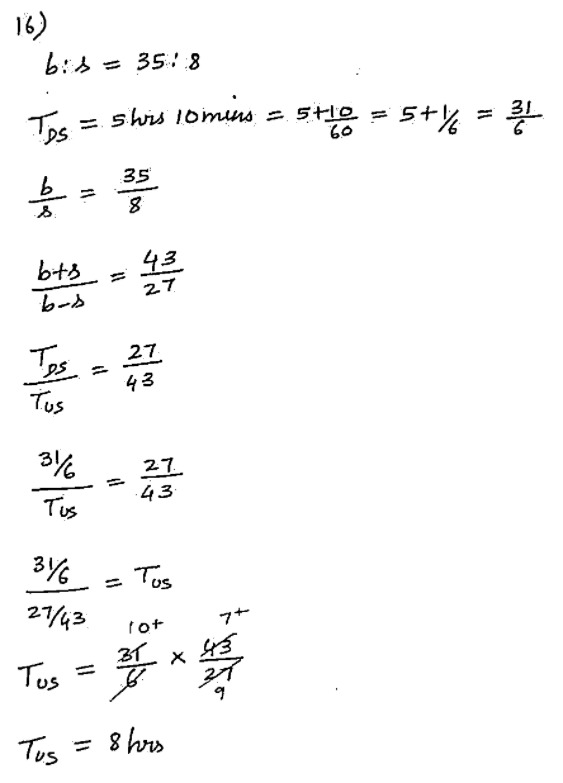 16)
b:s = 35:8
T_DS = 5hrs 10mins = 5+10/60 = 5+1/6 = 31/6
b/s = 35/8
b+s/b-s = 43/27
T_DS/T_US = 27/43
31/6/T_US = 27/43
31/6/27/43 = T_US
10+ 7+
T_US = 31/6 × 43/27
9
T_US = 8hrs